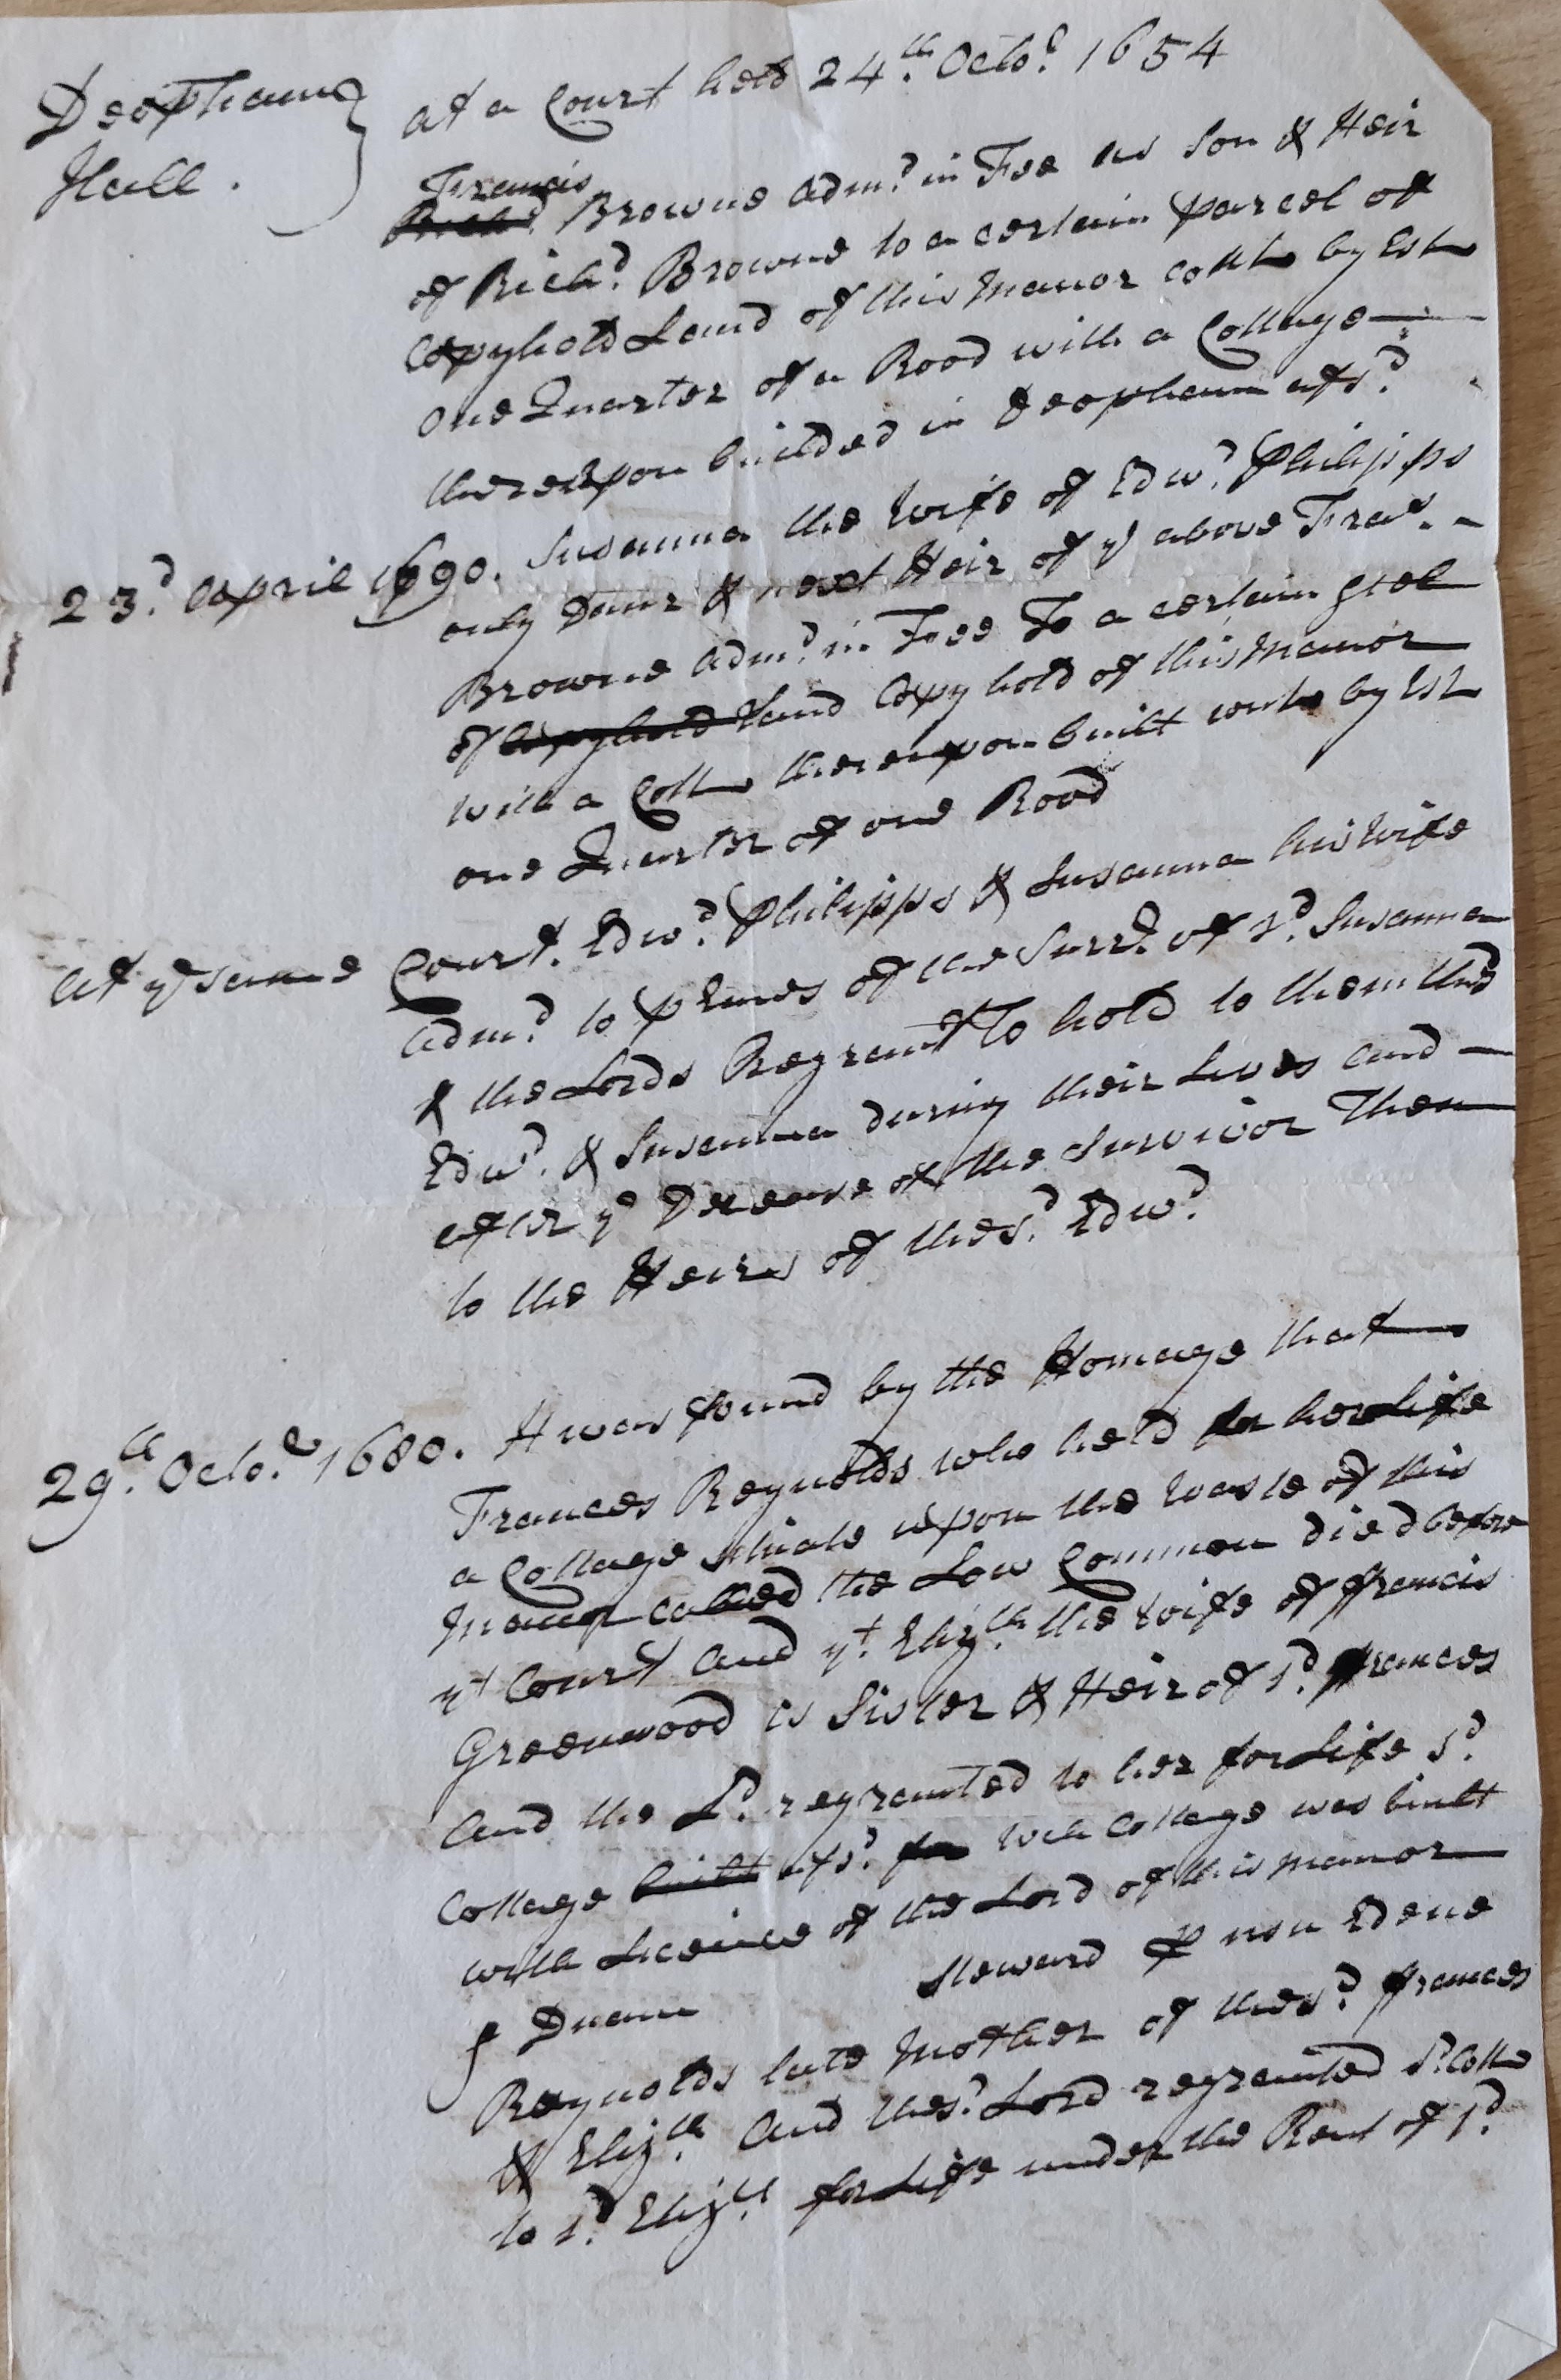 Deopham Hall.
At a Court held 24th. Octo.r 1654
Francis
Rich.d Browne Adm.d in Fee as Son & Heir
of Rich.d Browne to a certain parcel of
Copyhold Land of this Manor cont by Est
One Quarter of a Rood with a Cottage
thereupon builded in Deopham afs.d
23.d April 1690. Susanna the Wife of Edw.d Philipps
only Daur & next Heir of ye above Fras.
Browne Adm.d in Fee To a certain pcel
of Copyhold Land Copyhold of this Manor
with a Cott thereupon built cont by Est
one Quarter of one Rood
At ye same Court. Edw.d Philipps & Susanna his Wife
Adm.d to pmes of the Surr.r of s.d Susanna
& the Lords Regrant To hold to them the sd
Edw.d & Susanna during their Lives and
after ye Decease of the Survivor Then
to the Heirs of the s.d Edw.d
29th. Octo.r 1680. It was found by the Homage that
Frances Reynolds who held for her Life
a Cottage situate upon the Waste of this
Manor called the Low Common died before
yt Court and yt. Eliz.th the Wife of ffrancis
Greenwood is Sister & Heir of s.d ffrances
And the L.d regranted to her for Life s.d
Cottage built afs.d for wch Cottage was built
with Licence of the Lord of this Manor
p Duam Steward p non Edene
Reynolds late Mother of the s.d ffrances
& Eliz.th And the s.d Lord regranted s.d Cott
to s.d Eliz.th for Life under the Rent of 1.d